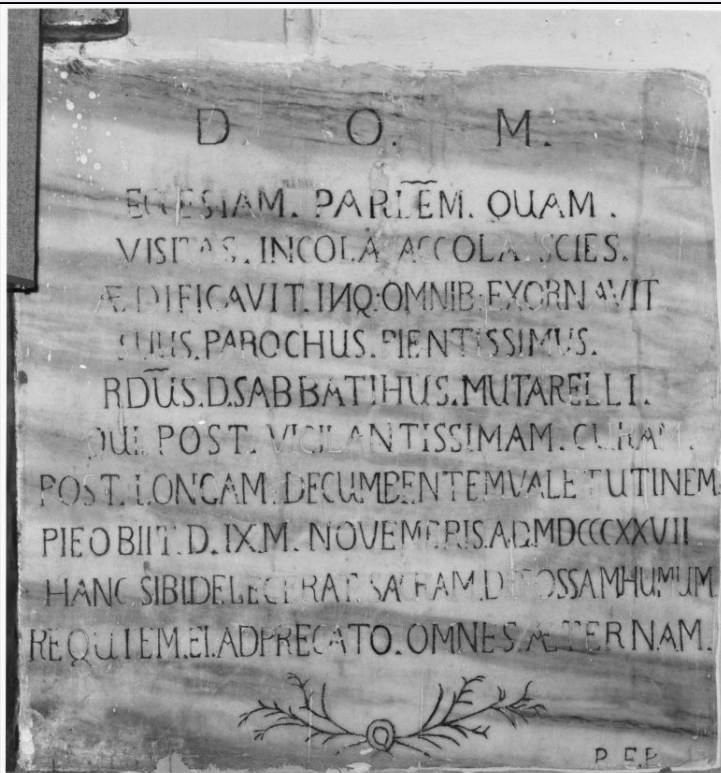 D. O. M.
ECCLESIAM. PARLEM̅. QUAM.
VISITAS. INCOLA ACCOLA SCIES.
ÆDIFICAVIT. INQ: OMNIB: EXORNAVIT
SUUS. PAROCHUS. PIENTISSIMUS.
RDŪS. D. SABBATIHUS. MUTARELLI.
QUI. POST. VIGILANTISSIMAM. CURAM.
POST. LONGAM. DECUMBENTEMVALETUTINEM
PIEOBIIT. D. IX. M. NOVEMBRIS. A.D. MDCCCXXVII
HANC SIBI DELEGERAT. SACRAM. HUMUM.
REQUIEM. EI. ADPRECATO. OMNES. ÆTERNAM.
P. F. P.